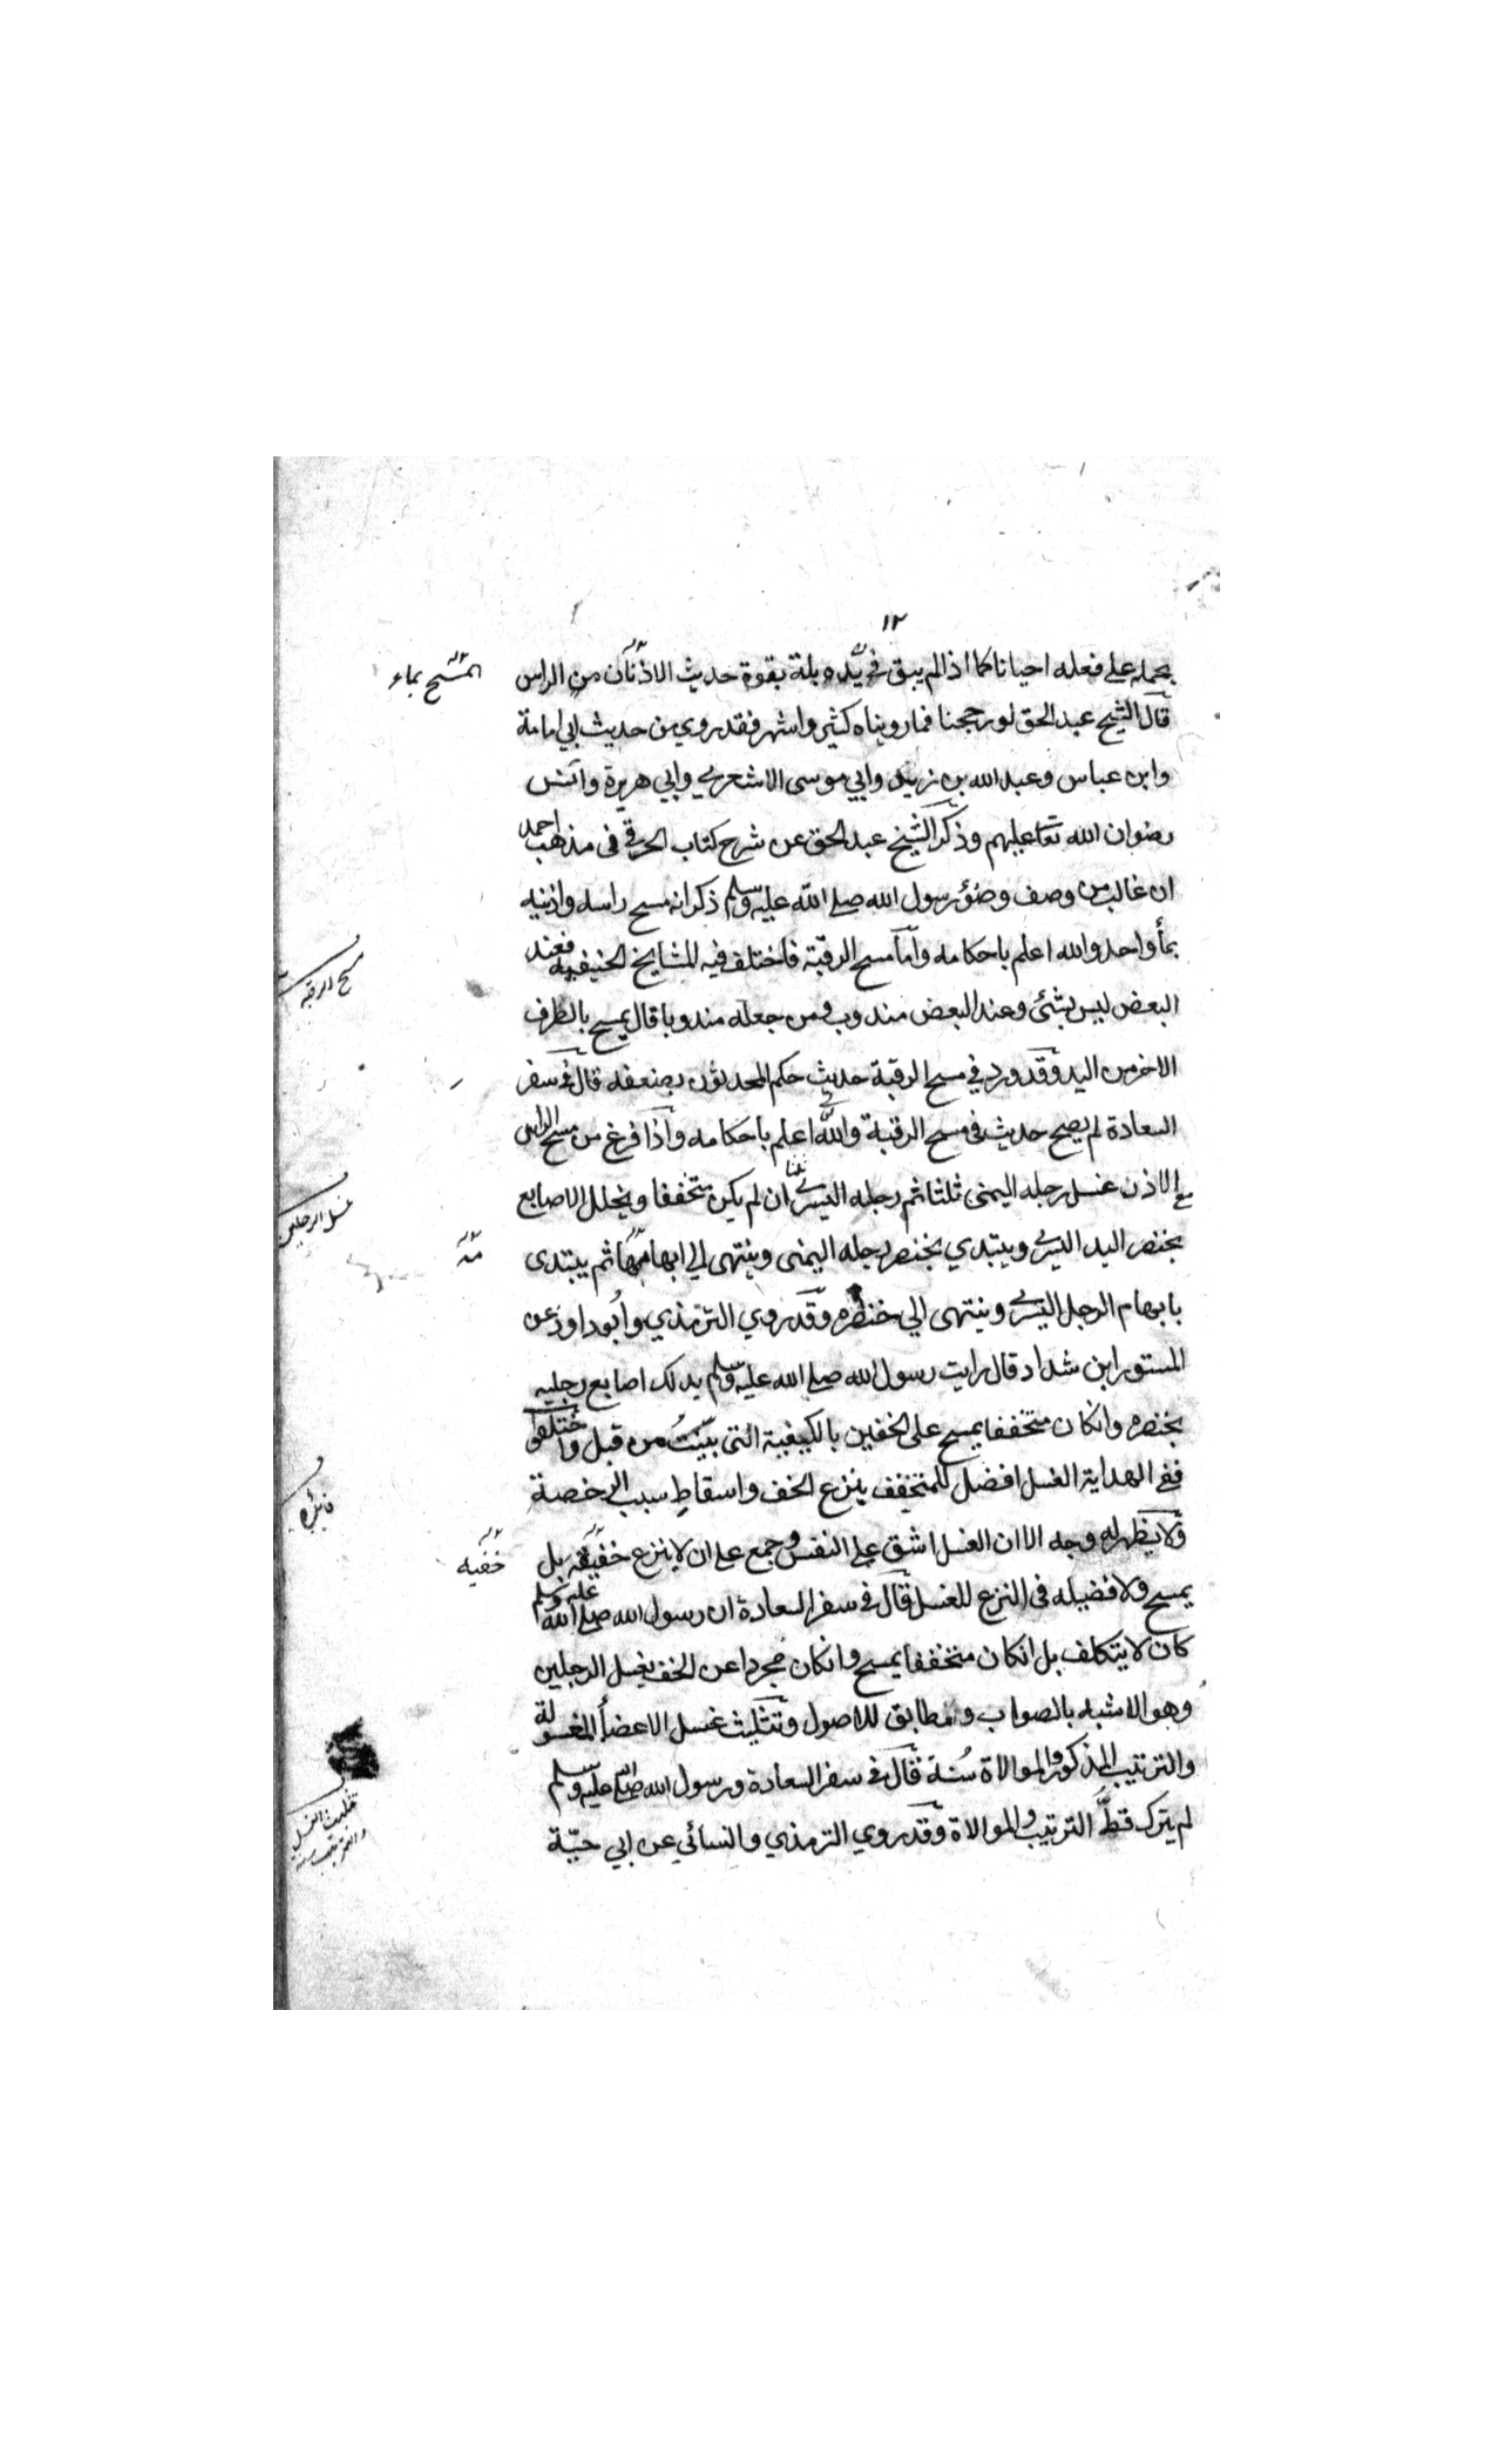 ١٢
يحمله على فعله احيانا كما اذا لم يبق في يده بلة بقوة حديث الاذنان من الراس
المسح بماء
قال الشيخ عبد الحق لو رجحنا فما رويناه كثير واشهر فقد روي من حديث ابي امامة
وابن عباس وعبد الله بن زيد وابي موسى الاشعري وابي هريرة وانس
رضوان الله تعا عليهم وذكر الشيخ عبد الحق عن شرح كتاب الخرقي في مذهب احمد
ان غالب من وصف وضؤ رسول الله صلى الله عليه وسلم ذكر انه مسح راسه واذنيه
بمأ واحد والله اعلم باحكامه واما مسح الرقبة فاختلف فيه المشايخ الحنيفيه فعند
مسح الرقبه
البعض ليس بشئ وعند البعض مندوب ومن جعله مندوبا قال يمسح بالطرف
الاخر من اليد وقد ورد في مسح الرقبة حديث حكم المحدثون بضعفه قال في سفر
السعادة لم يصح حديث في مسح الرقبة والله اعلم باحكامه واذا فرغ من مسح الراس
مع الاذن غسل رجله اليمنى ثلثا ثم رجله اليسرى ثلثا ان لم يكن متخففا ويخلل الاصابع
غسل الرجلين
بخنصر اليد اليسرى ويبتدي بخنصر رجله اليمنى وينتهى الي ابهامها ثم يبتدى
منه
بابهام الرجل اليسرى وينتهى الي خنصره وقد روي الترمذي وابو داود عن
المستور ابن شداد قال رايت رسول الله صلى الله عليه وسلم يدلك اصابع رجليه
بخنصره وانكان متخففا يمسح على الخفين بالكيفية التى بينت من قبل واختلفوا
ففى الهداية الغسل افضل للمتخفف ينزع الخف واسقاط سبب الرخصة
فائده
ولا يظهر له وجه الا ان الغسل اشق على النفس وجمع على ان لا ينزع خفيه بل
خفيه
يمسح ولا فضيله في النزع للغسل قال في سفر السعادة ان رسول الله صلى الله عليه وسلم
كان لا يتكلف بل انكان متخففا يمسح وانكان مجردا عن الخف يغسل الرجلين
وهو الاشبه بالصواب ومطابق للاصول وتثليث غسل الاعضأ المغسولة
والترتيب المذكور والموالاة سُنة قال في سفر السعادة ورسول الله صلى الله عليه وسلم
لم يترك قطّ الترتيب والموالاة وقد روي الترمذي والنسائي عن ابي حيّة
تثليث الغسل
والترتيب